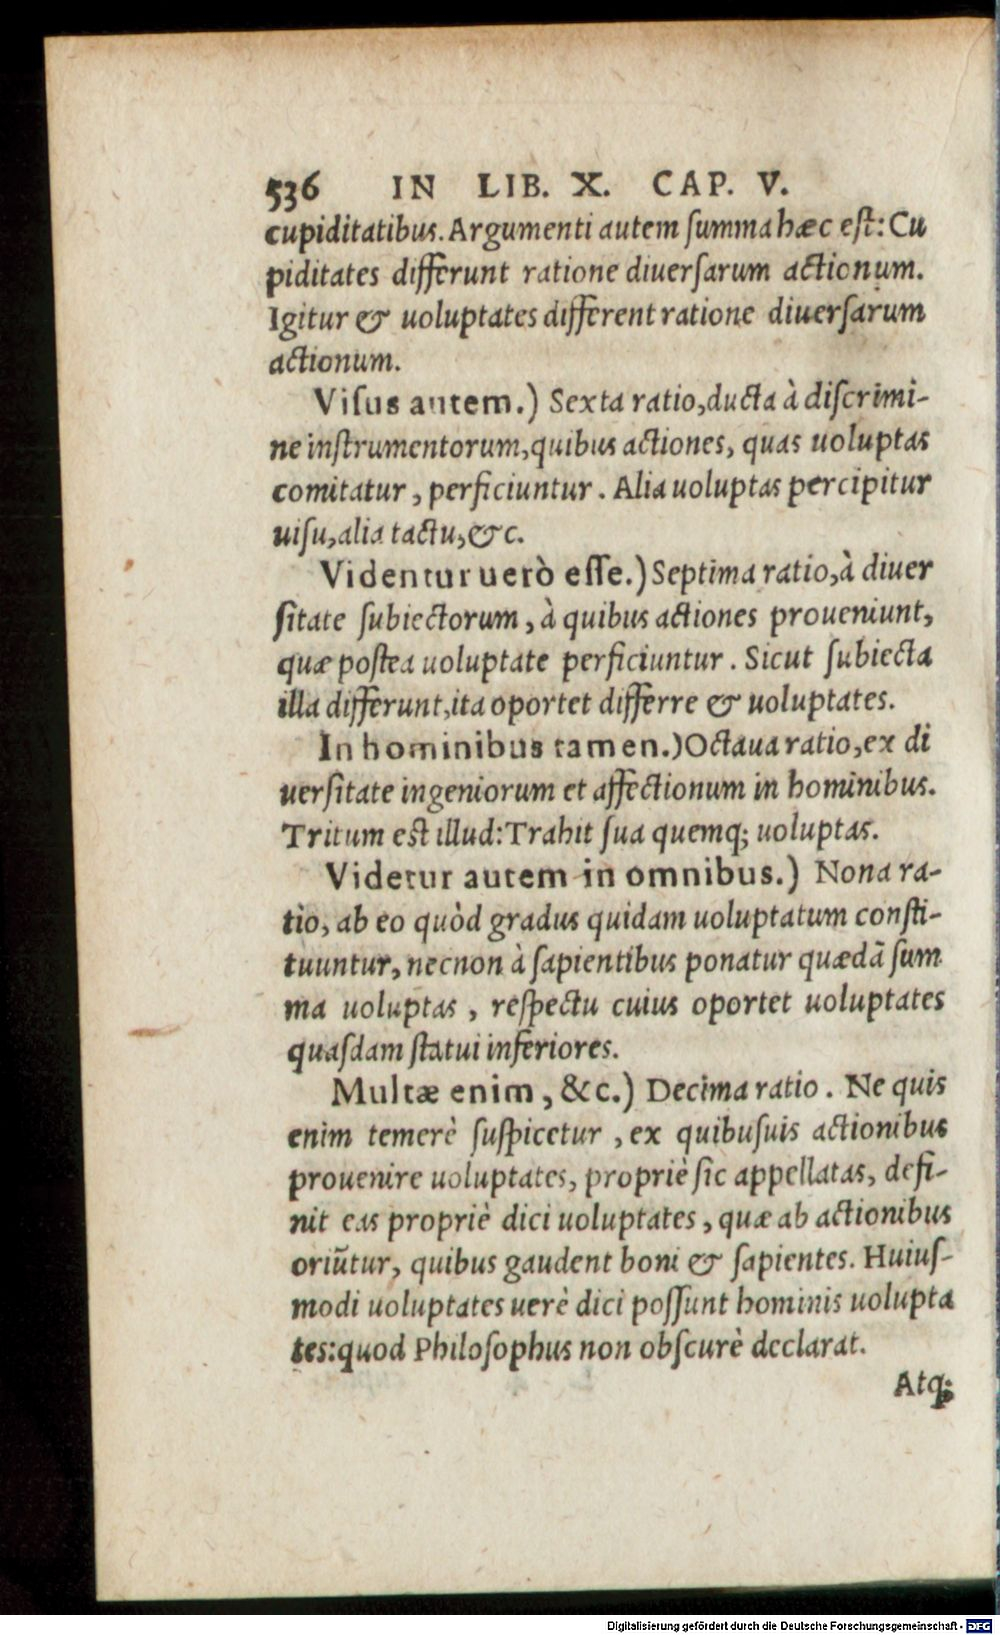 536 IN LIB. X. CAP. V.
cupiditatibus. Argumenti autem ſumma hæc eſt: Cu
piditates differunt ratione diuerſarum actionum.
Igitur & uoluptates different ratione diuerſarum
actionum.
Viſus autem.) Sexta ratio, ducta à diſcrimi-
ne inſtrumentorum, quibus actiones, quas uoluptas
comitatur, perficiuntur. Alia uoluptas percipitur
uiſu, alia tactu, &c.
Videntur uerò eſſe.) Septima ratio, à diuer
ſitate ſubiectorum, à quibus actiones proueniunt,
quæ poſtea uoluptate perficiuntur. Sicut ſubiecta
illa differunt, ita oportet differre & uoluptates.
In hominibus tamen.) Octaua ratio, ex di
uerſitate ingeniorum et affectionum in hominibus.
Tritum eſt illud: Trahit ſua quemq; uoluptas.
Videtur autem in omnibus.) Nona ra-
tio, ab eo quòd gradus quidam uoluptatum conſti-
tuuntur, necnon à ſapientibus ponatur quædã ſum
ma uoluptas, reſpectu cuius oportet uoluptates
quaſdam ſtatui inferiores.
Multæ enim, &c.) Decima ratio. Ne quis
enim temerè ſuſpicetur, ex quibuſuis actionibus
prouenire uoluptates, propriè ſic appellatas, defi-
nit eas propriè dici uoluptates, quæ ab actionibus
oriũtur, quibus gaudent boni & ſapientes. Huiuſ-
modi uoluptates uerè dici poſſunt hominis uolupta
tes: quod Philoſophus non obſcurè declarat.
Atq;
Digitalisierung gefördert durch die Deutsche Forschungsgemeinschaft - DFG